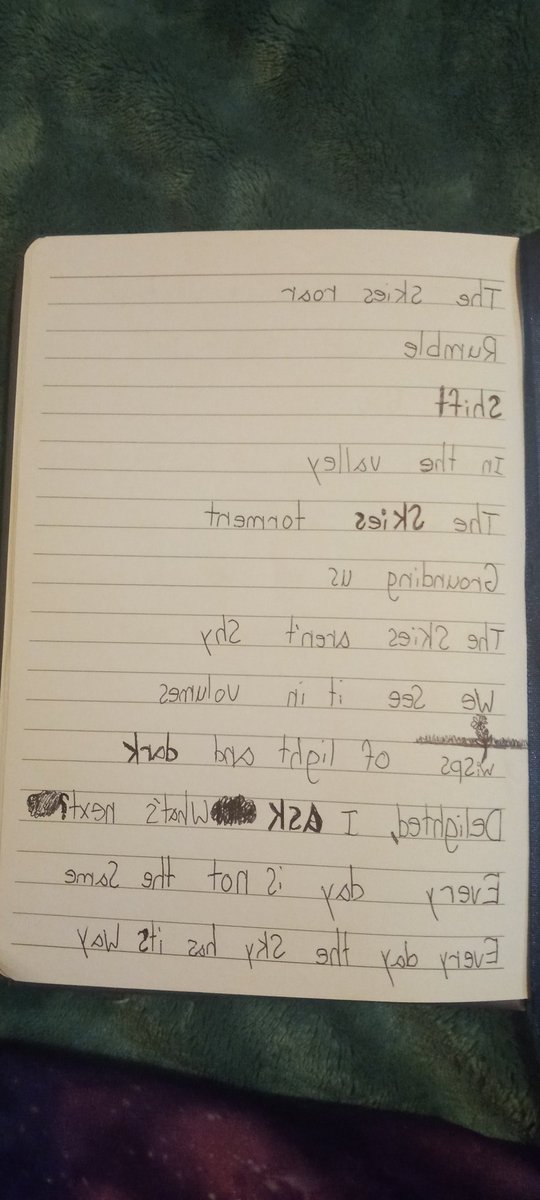 The Skies roar
Rumble
Shift
In the valley
The Skies torment
Grounding us
The Skies aren't Shy
We See it in volumes
wisps of light and dark
Delighted, I ASK What's next?
Every day is not the Same
Every day the Sky has its Way